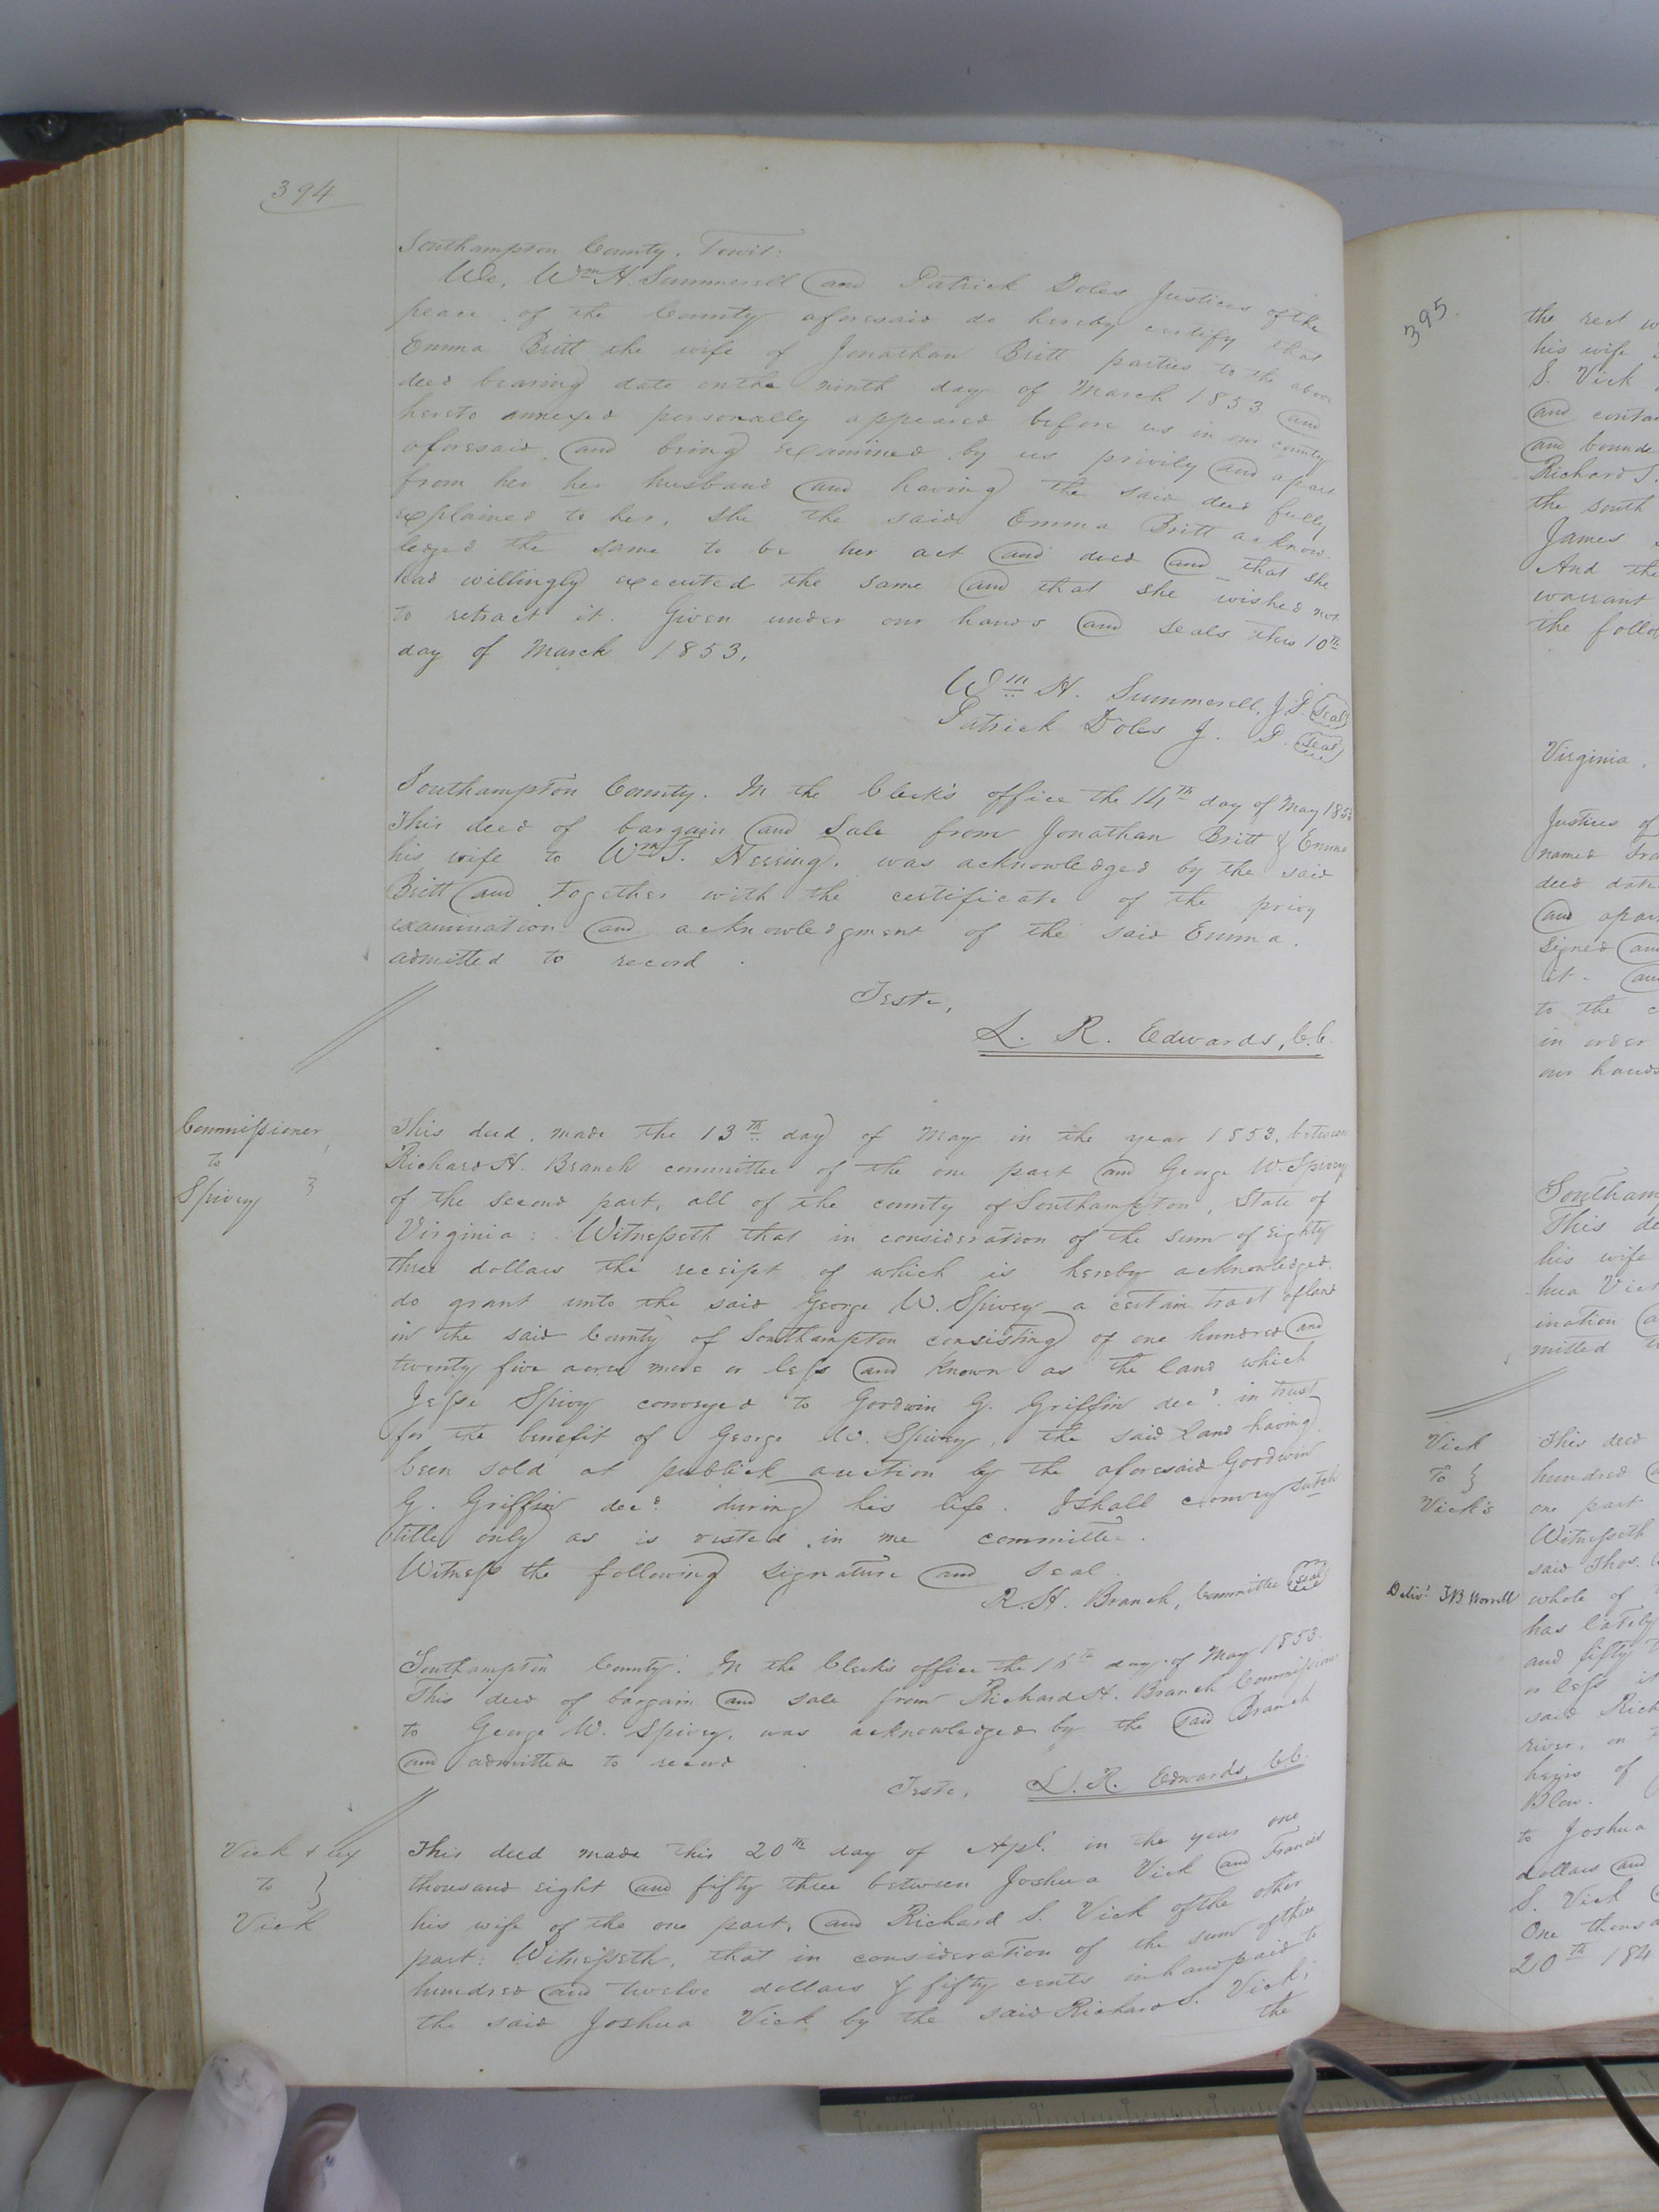 394
Southampton County, Towit:
We, Wm H. Summerell and Patrick Doles Justices of the
peace of the County aforesaid do hereby certify that
Emma Britt the wife of Jonathan Britt parties to the above
deed bearing date on the ninth day of March 1853 and
hereto annexed personally appeared before us in our county
aforesaid and being examined by us privily and apart
from her her husband and having the said deed fully
explained to her, she the said Emma Britt acknow-
ledged the same to be her act and deed and that she
had willingly executed the same and that she wished not
to retract it. Given under our hands and seals this 10th
day of March 1853.
Wm H. Summerell, J.P. Seal
Patrick Doles J. P. Seal
Southampton County. In the Clerk's office the 14th day of May 1853
This deed of bargain and sale from Jonathan Britt & Emma
his wife to Wm T. Herring, was acknowledged by the said
Britt and together with the certificate of the privy
examination and acknowledgment of the said Emma,
admitted to record.
Teste,
L. R. Edwards, C.C.
Commissioner
to
Spivey
This deed, made the 13th day of May in the year 1853, between
Richard H. Branch committee of the one part and George W. Spivey
of the second part, all of the county of Southampton, State of
Virginia: Witnesseth that in consideration of the sum of eighty
three dollars the receipt of which is hereby acknowledged,
do grant unto the said George W. Spivey a certain tract of land
in the said County of Southampton consisting of one hundred and
twenty five acres more or less and known as the land which
Jesse Spivey conveyed to Goodwin G. Griffin decd. in trust
for the benefit of George W. Spivey, the said land having
been sold at publick auction by the aforesaid Goodwin
G. Griffin decd. during his life. I shall convey sutch
title only as is vested in me committee.
Witness the following signature and seal.
R. H. Branch, Committee Seal
Southampton County. In the Clerk's office the 16th day of May 1853.
This deed of bargain and sale from Richard H. Branch Commissioner
to George W. Spivey, was acknowledged by the said Branch
and admitted to record.
Teste, L. R. Edwards, C.C.
Vick & ux
to
Vick
This deed made this 20th day of Apl. in the year one
thousand eight and fifty three between Joshua Vick and Frances
his wife of the one part, and Richard S. Vick of the other
part: Witnesseth, that in consideration of the sum of three
hundred and twelve dollars & fifty cents in hand paid to
the said Joshua Vick by the said Richard S. Vick,
the
395
the rect
his wife
S. Vick
and
and bounde
Richard S.
the south
James
And the
warrant
the follo
Virginia,
Justices of
named Fra
deed date
and apar
signed and
it -
to the
in order
our hands
Southam
This de
his wife
hua Vick
ination
mitted
Vick
To
Vick's
This deed
hundred
one part
Witnesseth
said Thos.
Delivd. J B Worrell
whole of
has lately
and fifty
or less
said Rich
river, on
heirs of
Blow.
to Joshua
dollars and
S. Vick
One thousa
20th 184